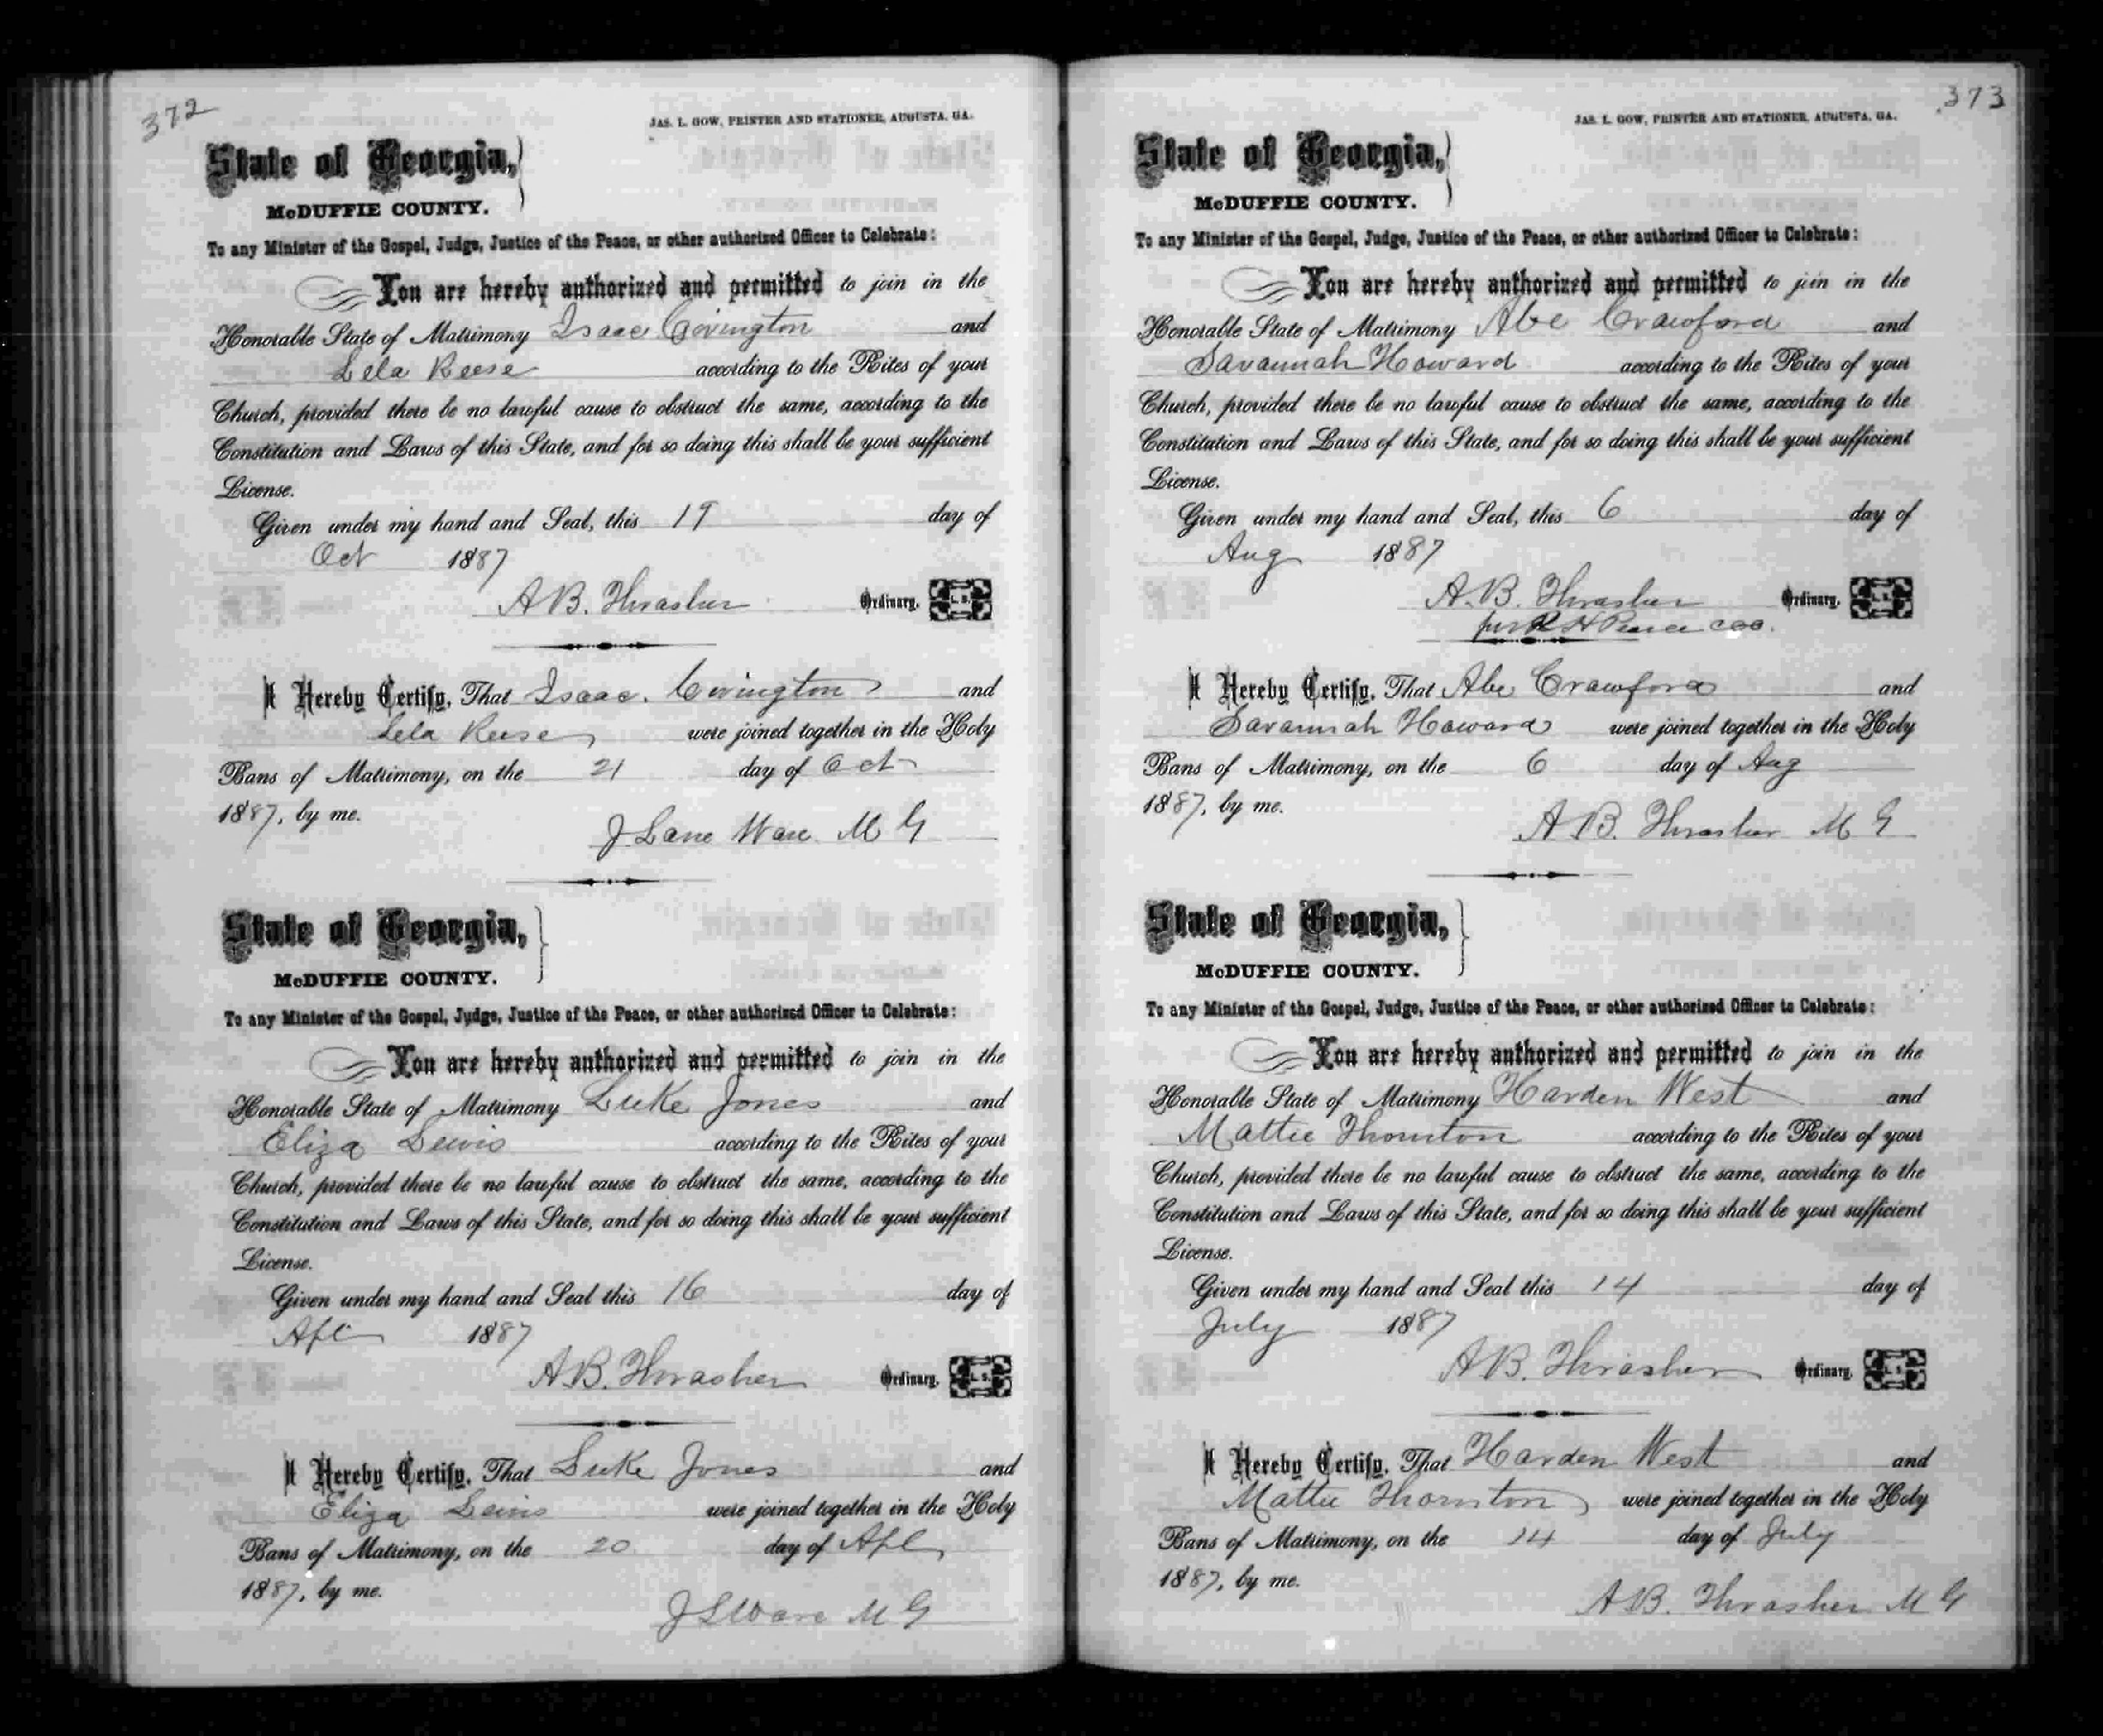 372
JAS. L. GOW, PRINTER AND STATIONER, AUGUSTA, GA.
State of Georgia,
McDUFFIE COUNTY.
To any Minister of the Gospel, Judge, Justice of the Peace, or other authorized Officer to Celebrate:
You are hereby authorized and permitted to join in the
Honorable State of Matrimony Isaac Covington and
Lela Reese according to the Rites of your
Church, provided there be no lawful cause to obstruct the same, according to the
Constitution and Laws of this State, and for so doing this shall be your sufficient
License.
Given under my hand and Seal, this 19 day of
Oct 1887
A B. Thrasher Ordinary. L. S.
I Hereby Certify, That Isaac. Covington and
Lela Reese were joined together in the Holy
Bans of Matrimony, on the 21 day of Oct
1887, by me.
J Lane Ware M G
State of Georgia,
McDUFFIE COUNTY.
To any Minister of the Gospel, Judge, Justice of the Peace, or other authorized Officer to Celebrate:
You are hereby authorized and permitted to join in the
Honorable State of Matrimony Luke Jones and
Eliza Lewis according to the Rites of your
Church, provided there be no lawful cause to obstruct the same, according to the
Constitution and Laws of this State, and for so doing this shall be your sufficient
License.
Given under my hand and Seal this 16 day of
Apl 1887
A B. Thrasher Ordinary. L. S.
I Hereby Certify, That Luke Jones and
Eliza Lewis were joined together in the Holy
Bans of Matrimony, on the 20 day of Apl
1887, by me.
J L Ware M G
373
JAS. L. GOW, PRINTER AND STATIONER, AUGUSTA, GA.
State of Georgia,
McDUFFIE COUNTY.
To any Minister of the Gospel, Judge, Justice of the Peace, or other authorized Officer to Celebrate:
You are hereby authorized and permitted to join in the
Honorable State of Matrimony Abe Crawford and
Savannah Howard according to the Rites of your
Church, provided there be no lawful cause to obstruct the same, according to the
Constitution and Laws of this State, and for so doing this shall be your sufficient
License.
Given under my hand and Seal, this 6 day of
Aug 1887
A. B. Thrasher Ordinary. L. S.
per R H Pearce
I Hereby Certify, That Abe Crawford and
Savannah Howard were joined together in the Holy
Bans of Matrimony, on the 6 day of Aug
1887, by me.
A B. Thrasher M G
State of Georgia,
McDUFFIE COUNTY.
To any Minister of the Gospel, Judge, Justice of the Peace, or other authorized Officer to Celebrate:
You are hereby authorized and permitted to join in the
Honorable State of Matrimony Harden West and
Mattie Thornton according to the Rites of your
Church, provided there be no lawful cause to obstruct the same, according to the
Constitution and Laws of this State, and for so doing this shall be your sufficient
License.
Given under my hand and Seal this 14 day of
July 1887
A B. Thrasher Ordinary. L. S.
I Hereby Certify, That Harden West and
Mattie Thornton were joined together in the Holy
Bans of Matrimony, on the 14 day of July
1887, by me.
A B. Thrasher M G